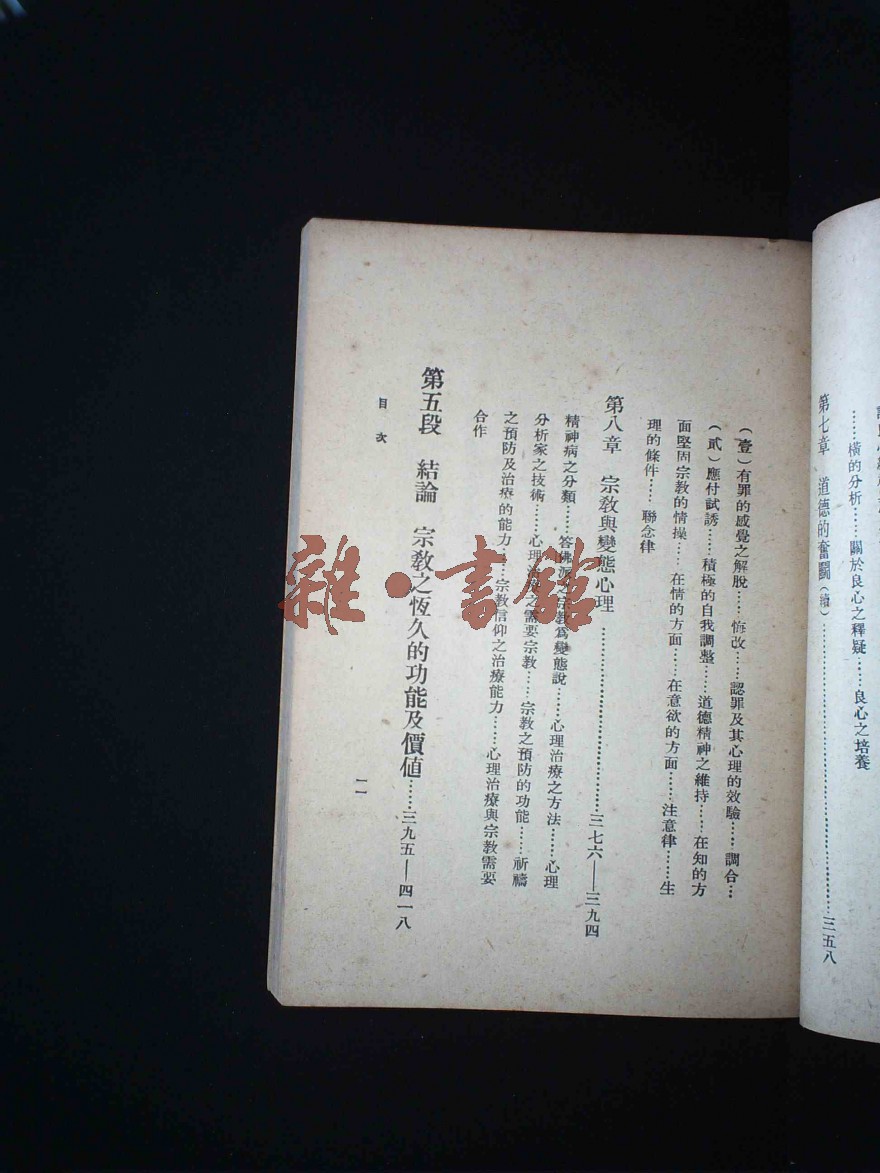 ……橫的分析……關於良心之釋疑……良心之培養
第七章　道德的奮鬭(續)……三五八
(壹)有罪的感覺之解脫……悔改……認罪及其心理的效驗……調合…
(貳)應付試誘……積極的自我調整……道德精神之維持……在知的方
面堅固宗教的情操……在情的方面……在意欲的方面……注意律……生
理的條件……聯念律
第八章　宗教與變態心理……三七六——三九四
精神病之分類……答佛洛之宗教爲變態說……心理治療之方法……心理
分析家之技術……心理治療之需要宗教……宗教之預防的功能……祈禱
之預防及治療的能力……宗教信仰之治療能力……心理治療與宗教需要
合作
第五段　結論　宗教之恆久的功能及價值……三九五——四一八
目次
一一
雜·書館